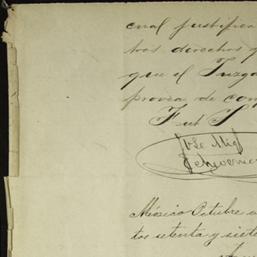 cual justifica
tros derechos y
que el Juzga
provea de con
José Mig
Echeverri
México Octubre
tos setenta y siete